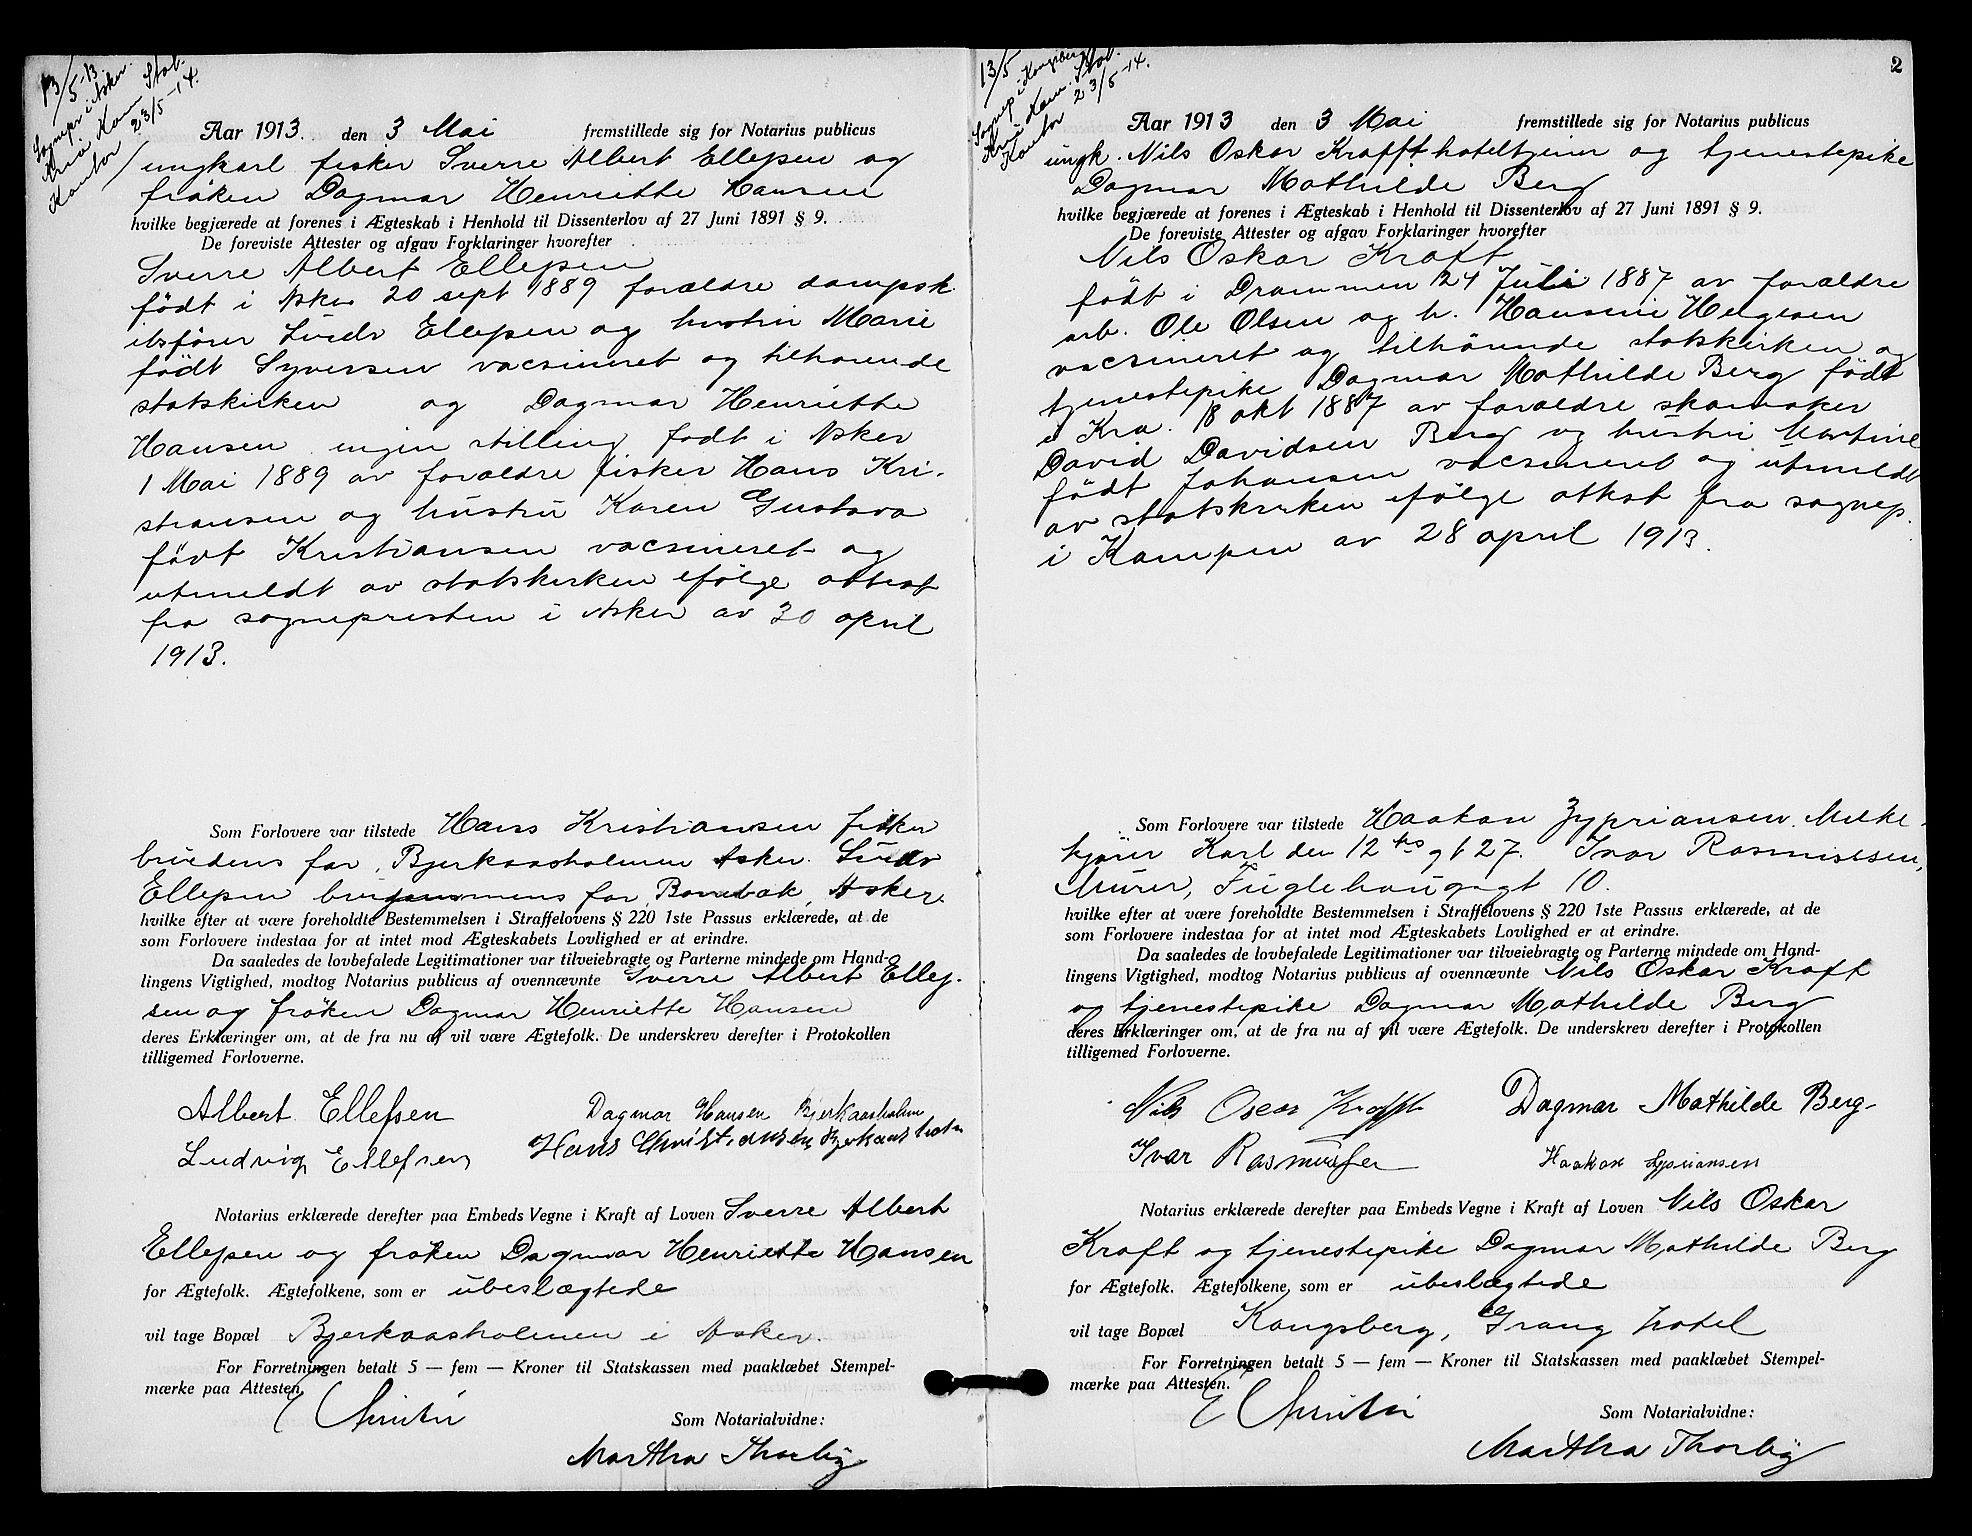 13/5-13.
Sognepr i Asker.
Kra Kom Stat.
Kontor 23/5-14.
Aar 1913. den 3 Mai fremstillede sig for Notarius publicus
ungkarl fisker Sverre Albert Ellefsen og
frøken Dagmar Henriette Hansen
hvilke begjærede at forenes i Ægteskab i Henhold til Dissenterlov af 27 Juni 1891 § 9.
De foreviste Attester og afgav Forklaringer hvorefter
Sverre Albert Ellefsen
født i Asker 20 sept 1889 forældre dampsk.
ibsfører Ludv Ellefsen og hustru Marie
født Syversen vacsineret og tilhørende
statskirken og Dagmar Henriette
Hansen ingen stilling født i Asker
1 Mai 1889 av forældre fisker Hans Kri-
stiansen og hustru Karen Gustava
født Kristiansen vacsineret og
utmeldt av statskirken ifølge attest
fra sognepresten i Asker av 30 april
1913.
Som Forlovere var tilstede Hans Kristiansen fisker
brudens far, Bjerkaasholmen Asker. Ludv
Ellefsen brudgommens far, Bonnebak, Asker.
hvilke efter at være foreholdte Bestemmelsen i Straffelovens § 220 1ste Passus erklærede, at de
som Forlovere indestaa for at intet mod Ægteskabets Lovlighed er at erindre.
Da saaledes de lovbefalede Legitimationer var tilveiebragte og Parterne mindede om Hand-
lingens Vigtighed, modtog Notarius publicus af ovennævnte Sverre Albert Ellef-
sen og frøken Dagmar Henriette Hansen
deres Erklæringer om, at de fra nu af vil være Ægtefolk. De underskrev derefter i Protokollen
tilligemed Forloverne.
Albert Ellefsen Dagmar Hansen Bjerkaasholm
Ludvig Ellefsen Hans Christiansen Bjerkaasholm
Notarius erklærede derefter paa Embeds Vegne i Kraft af Loven Sverre Albert
Ellefsen og frøken Dagmar Henriette Hansen
for Ægtefolk. Ægtefolkene, som er ubeslægtede
vil tage Bopæl Bjerkaasholmen i Asker.
For Forretningen betalt 5 — fem — Kroner til Statskassen med paaklæbet Stempel-
mærke paa Attesten.
E Christie
Som Notarialvidne:
Martha Thorby
2
13/5
Sognep i Kongsberg
Kra Kom. Stat.
Kontor 23/5-14.
Aar 1913 den 3 Mai fremstillede sig for Notarius publicus
ungk. Nils Oskar Krafft hoteltjener og tjenestepike
Dagmar Mathilde Berg
hvilke begjærede at forenes i Ægteskab i Henhold til Dissenterlov af 27 Juni 1891 § 9.
De foreviste Attester og afgav Forklaringer hvorefter
Nils Oskar Kraft
født i Drammen 24 Juli 1887 av forældre
arb. Ole Olsen og h. Hansine Helgesen
vacsineret og tilhørende statskirken og
tjenestepike Dagmar Mathilde Berg født
i Kra. 18 okt 1887 av forældre skomaker
David Davidsen Berg og hustru Martine
født Johansen vacsineret og utmeldt
av statskirken ifølge attest fra sognep.
i Kampen av 28 april 1913.
Som Forlovere var tilstede Haakon Zypriansen. Melke-
kjører Karl den 12 tes gt 27. Ivar Rasmussen,
Murer, Fuglehauggt 10.
hvilke efter at være foreholdte Bestemmelsen i Straffelovens § 220 1ste Passus erklærede, at de
som Forlovere indestaa for at intet mod Ægteskabets Lovlighed er at erindre.
Da saaledes de lovbefalede Legitimationer var tilveiebragte og Parterne mindede om Hand-
lingens Vigtighed, modtog Notarius publicus af ovennævnte Nils Oskar Kraft
og tjenestepike Dagmar Mathilde Berg
deres Erklæringer om, at de fra nu af vil være Ægtefolk. De underskrev derefter i Protokollen
tilligemed Forloverne.
Nils Oscar Krafft Dagmar Mathilde Berg.
Ivar Rasmussen Haakon Zypriansen
Notarius erklærede derefter paa Embeds Vegne i Kraft af Loven Nils Oskar
Kraft og tjenestepike Dagmar Mathilde Berg
for Ægtefolk. Ægtefolkene, som er ubeslægtede
vil tage Bopæl Kongsberg, Grang hotel
For Forretningen betalt 5 — fem — Kroner til Statskassen med paaklæbet Stempel-
mærke paa Attesten.
E Christie
Som Notarialvidne:
Martha Thorby